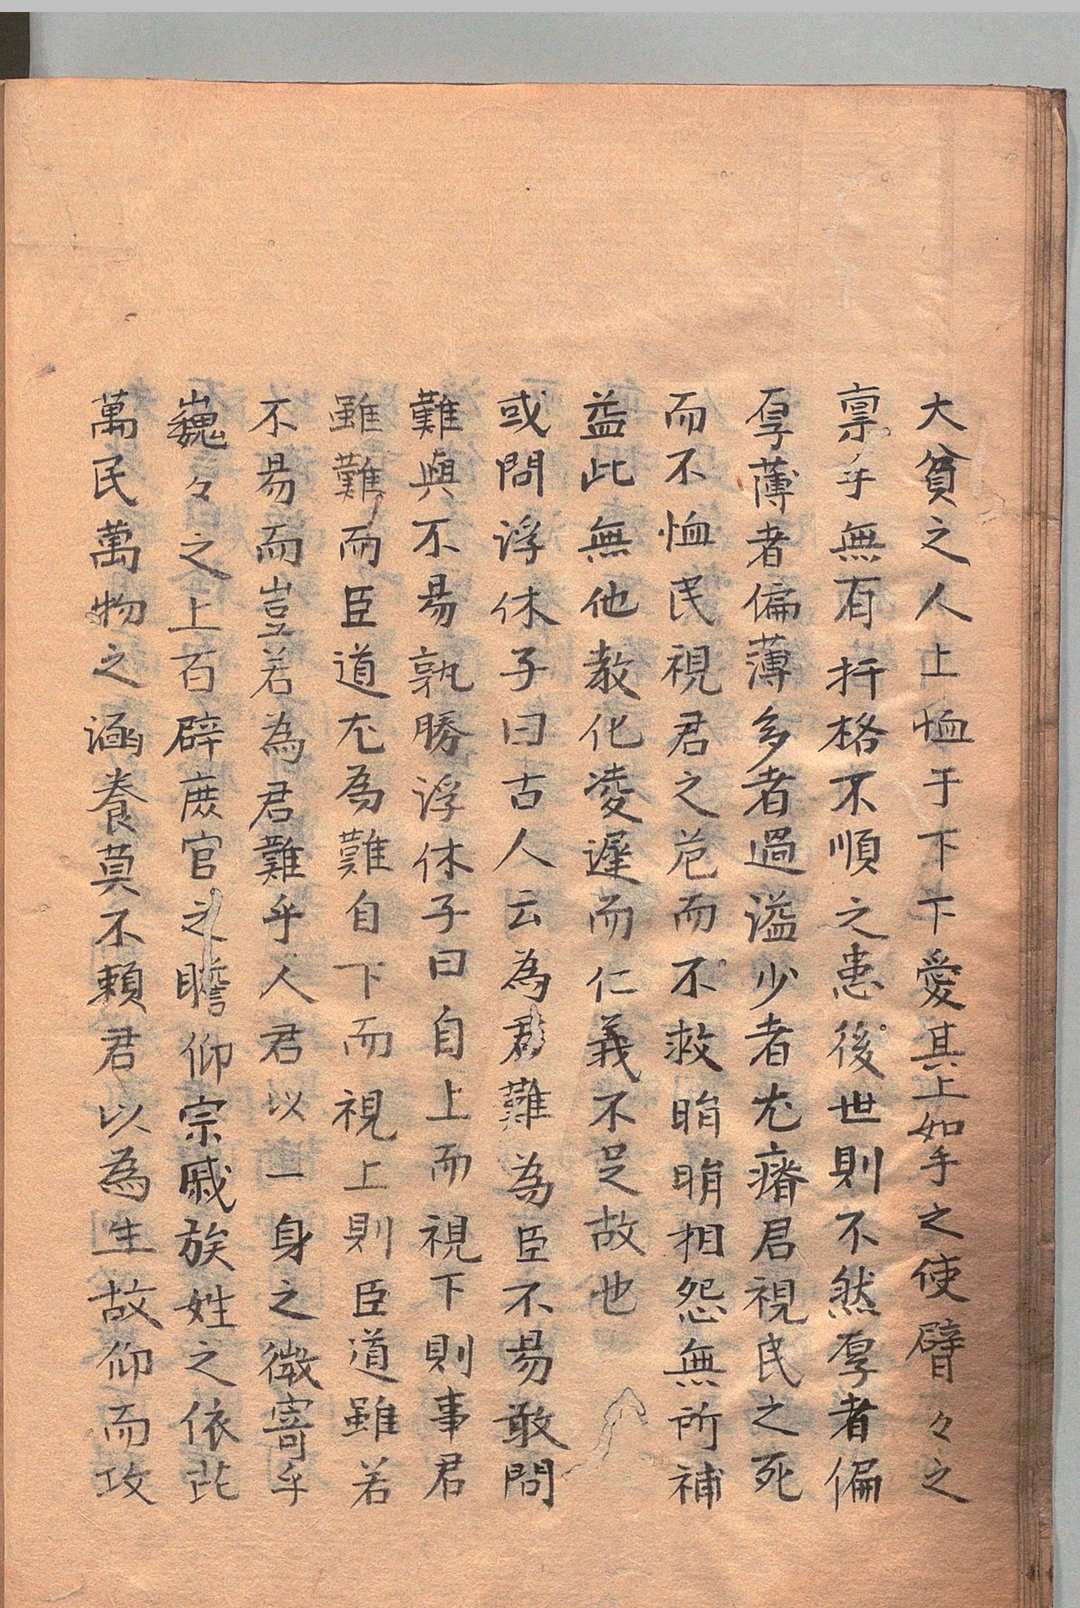 大貧之人上恤于下下愛其上如手之使臂々之
稟乎無有扞格不順之患後世則不然厚者偏
厚薄者偏薄多者過溢少者尤瘠君視民之死
而不恤民視君之危而不救睊睊相怨無所補
益此無他教化凌遲而仁義不足故也
或問浮休子曰古人云為君難為臣不易敢問
難與不易孰勝浮休子曰自上而視下則事君
雖難而臣道尤為難自下而視上則臣道雖若
不易而豈若為君難乎人君以一身之微寄乎
巍々之上百辟庶官之瞻仰宗戚族姓之依比
萬民萬物之涵養莫不賴君以為生故仰而攻